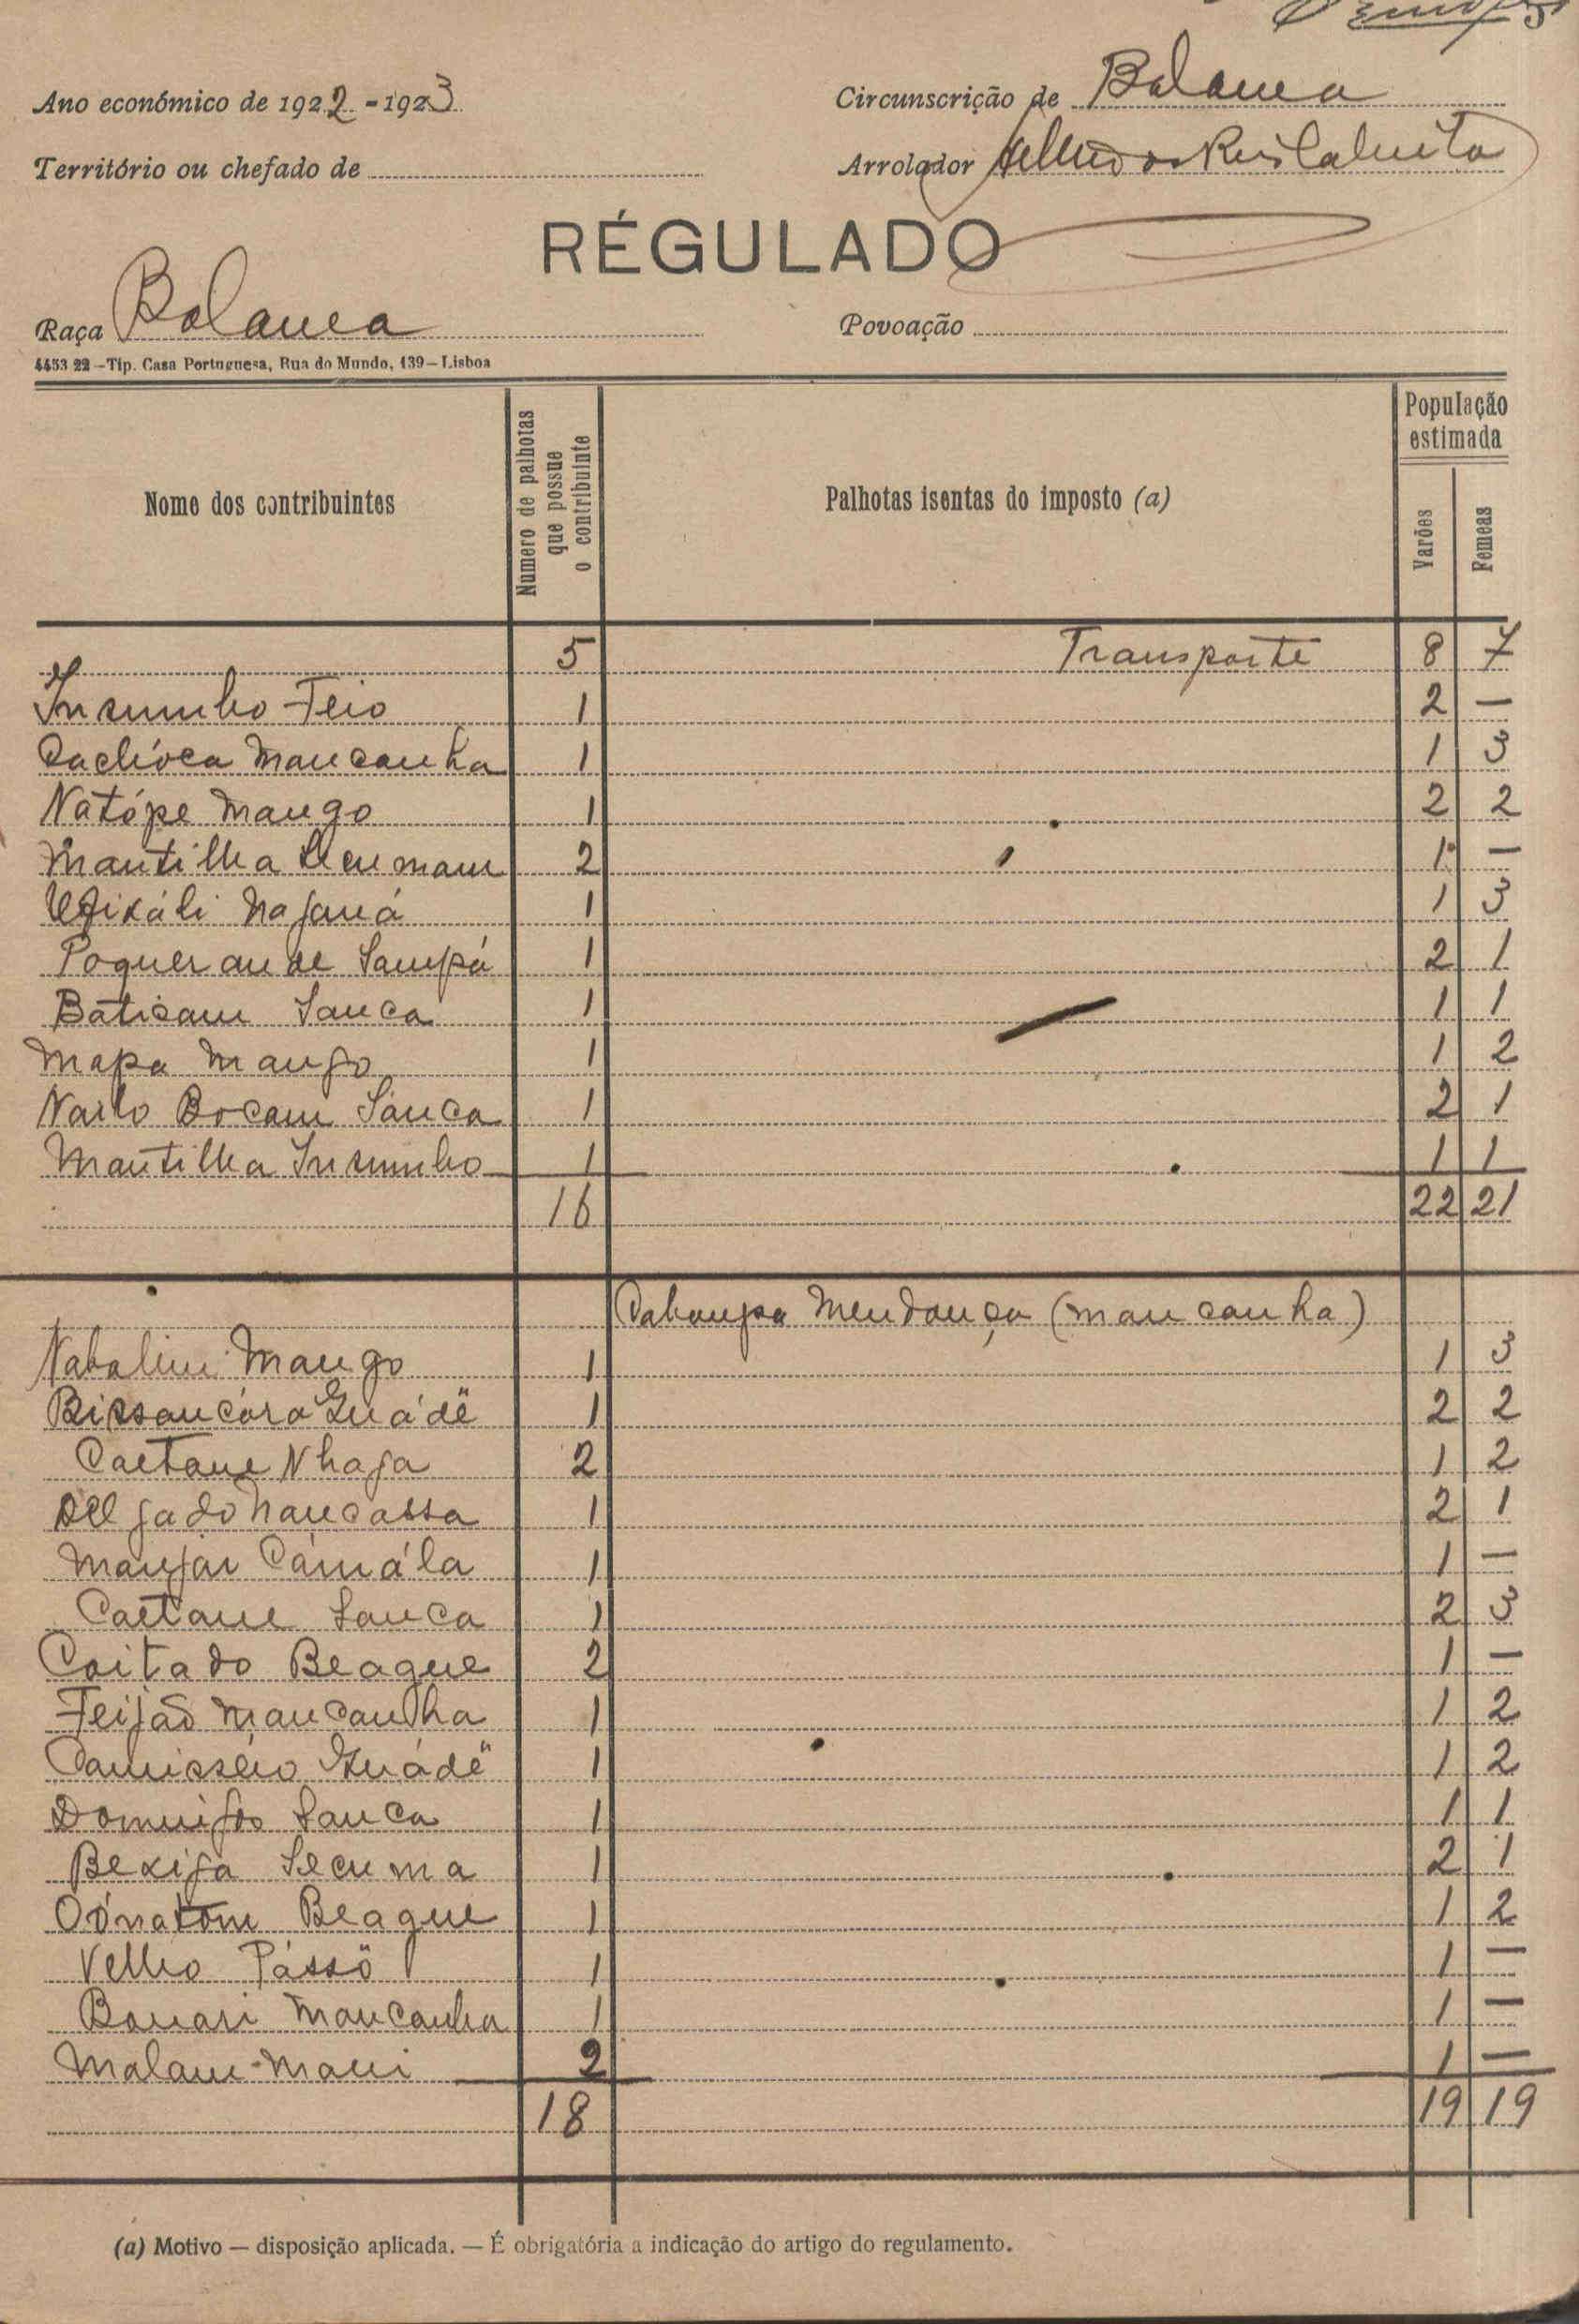 Ano económico de 1922-1923
Circunscrição de Balanca
Território ou chefado de
Arrolador
RÉGULADO
Raça Balanca
Povoação
4453 22 — Tip. Casa Portuguesa, Rua do Mundo, 139 — Lisboa
Nome dos contribuintes
Numero de palhotas que possue o contribuinte
Palhotas isentas do imposto (a)
População estimada
Varões
Femeas
5 Transporte 8 7
Insumbo Feio 1 2 —
Cachióca Mancanha 1 1 3
Natópe Mango 1 2 2
Mantilha 2 1 —
Najaná 1 1 3
Sampá 1 2 1
Baticam Sanca 1 1 1
Mapa Mango 1 1 2
Bocam Sanca 1 2 1
Mantilha Insumbo 1 1 1
16 22 21
Mendonça (mancanha)
Nabalim Mango 1 1 3
Bissancóra Guádê 1 2 2
Caetane Nhaga 2 1 2
Delgado Nancassa 1 2 1
Cámála 1 1 —
Caetane Sanca 1 2 3
Coitado Beague 2 1 —
Feijão Mancanha 1 1 2
Guádê 1 1 2
Domingos Sanca 1 1 1
Bexiga Secuma 1 2 1
Beague 1 1 2
Velho Pássô 1 1 —
Bonari Mancanha 1 1 —
Malam Mani 2 1 —
18 19 19
(a) Motivo — disposição aplicada. — É obrigatória a indicação do artigo do regulamento.